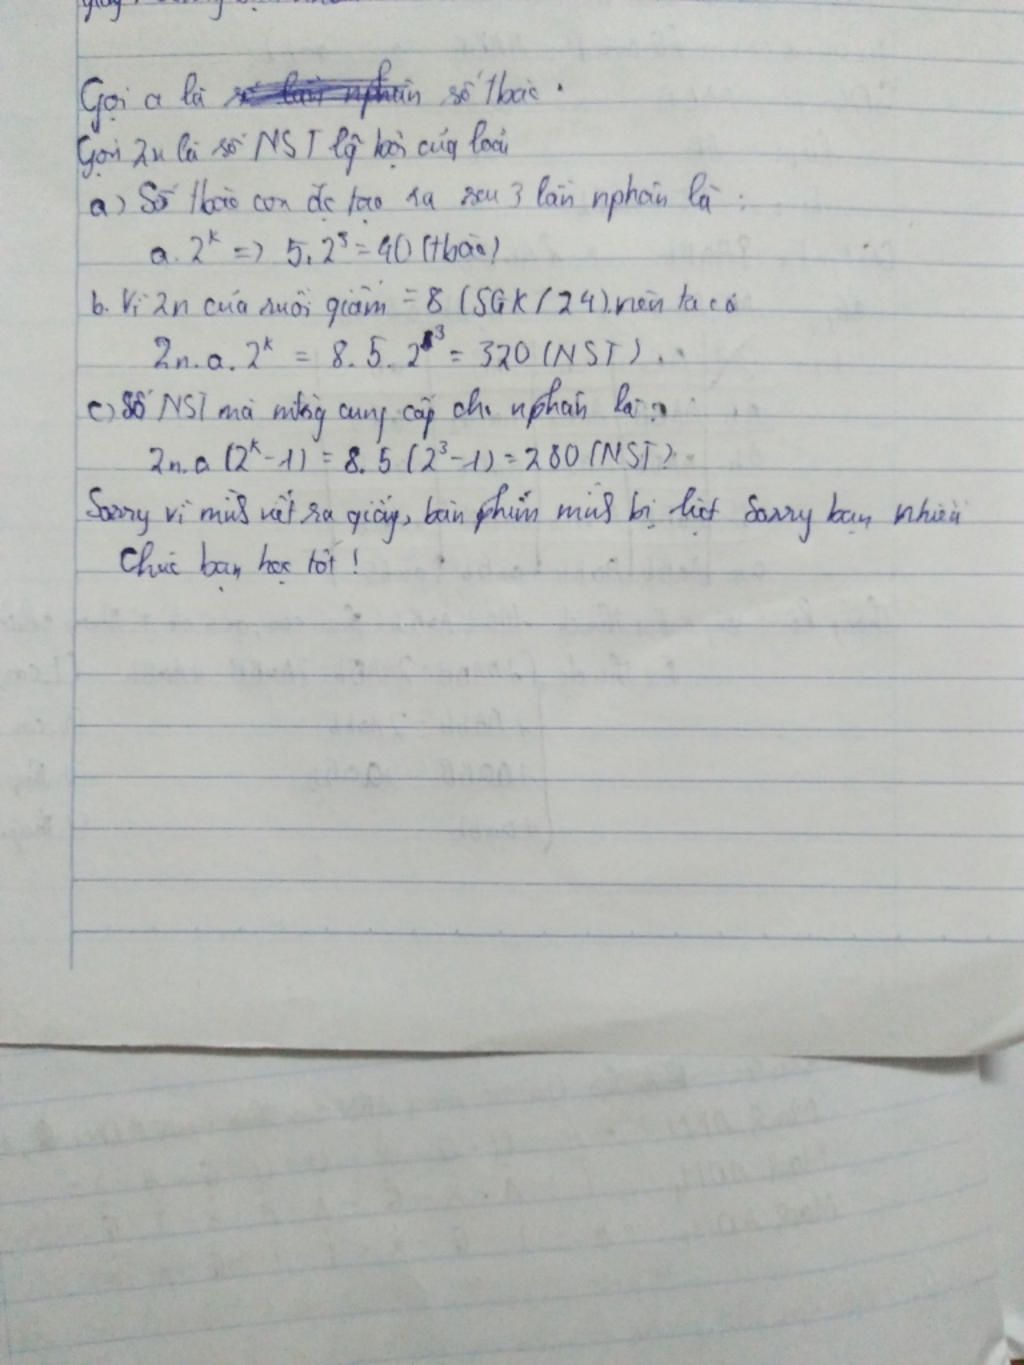 Gọi a là số tbào.
Gọi 2n là số NST lg bội của loài
a) Số tbào con đc tạo ra sau 3 lần nphân là:
a.2^k => 5.2^3 = 40 (tbào)
b. Vì 2n của ruồi giấm = 8 (SGK/24) nên ta có
2n.a.2^k = 8.5.2^3 = 320 (NST).
c) Số NST mà mtrg cung cấp cho nphân là:
2n.a (2^k-1) = 8.5 (2^3-1) = 280 (NST)
Sorry vì mik viết ra giấy, bàn phím mik bị liệt Sorry bạn nhiều
Chúc bạn học tốt!